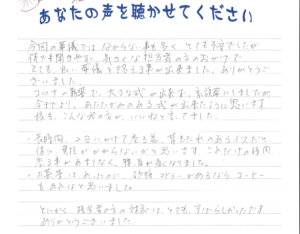 あなたの声を聴かせてください
今回の葬儀ではわからない事も多く、とても不安でしたが
何でも聞きやすい、気さくな担当者の方のおかげで
とても、良い葬儀を終える事が出来ました。ありがとうご
ざいました。
コロナの影響で、大きな式が出来ず、家族葬にしましたが
今までより、あたたかみのある式が出来たように思います
娘も、こんな式の方が、いいねと言ってました。
・長時間、2日にかけて座る為、背もたれのあるイスだと
体に負担がかからないかと思います。これだけの時間
座る事があまりなく、腰、首が痛くなりました。
・お茶等は、あったのに、砂糖、ミルクがあるなら、コーヒー
もあればと思いました。
とにかく、担当者の方の対応は、とても、すばらしかったです
ありがとうございました。